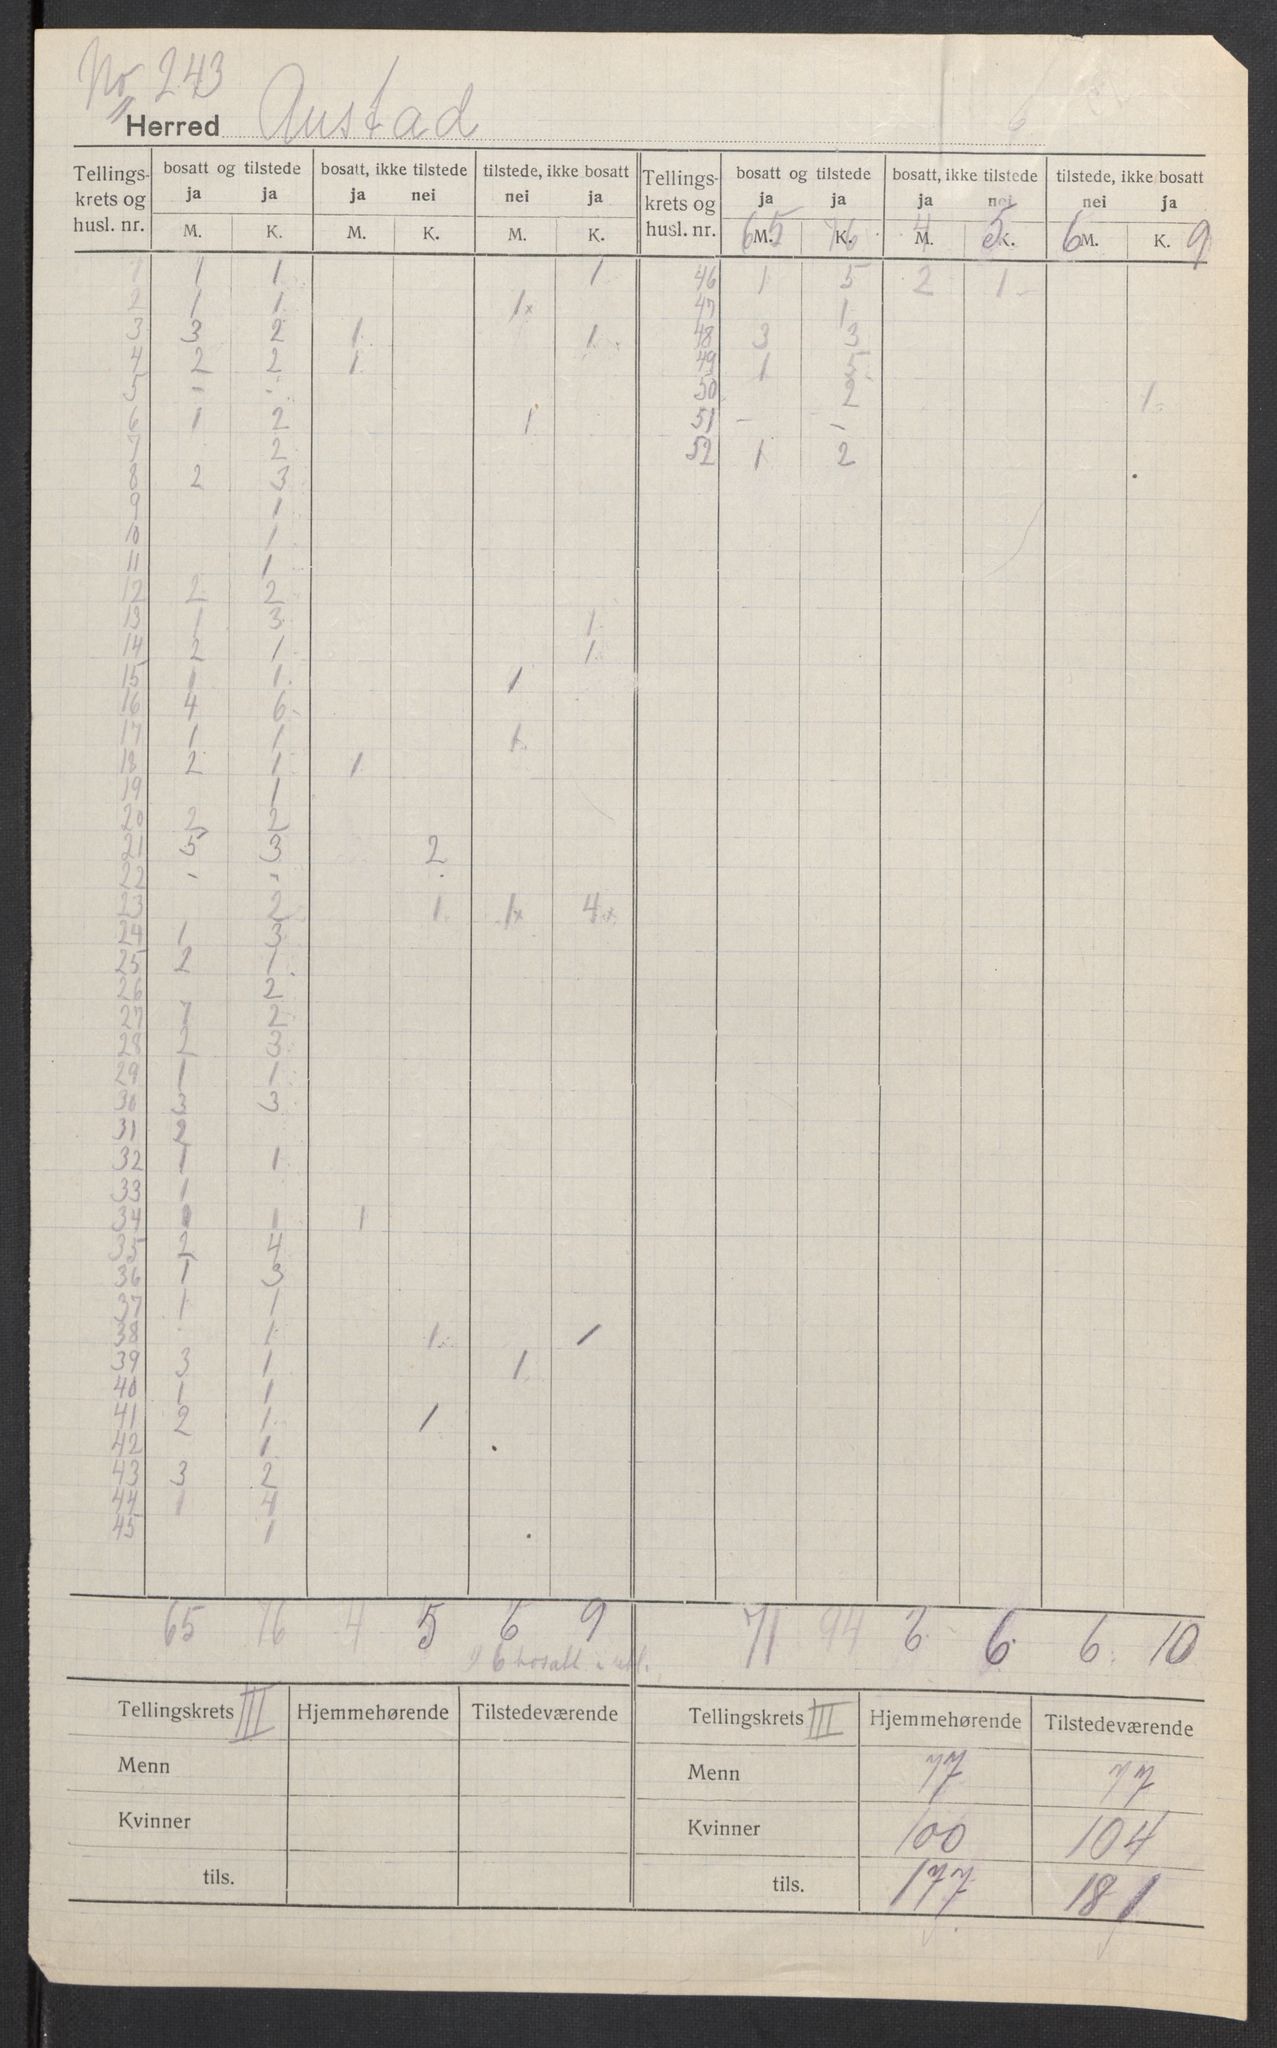 No 243
Herred Austad
Tellings- krets og husl. nr. | bosatt og tilstede ja ja | bosatt, ikke tilstede ja nei | tilstede, ikke bosatt nei ja | Tellings- krets og husl. nr. | bosatt og tilstede ja ja | bosatt, ikke tilstede ja nei | tilstede, ikke bosatt nei ja
M. K. M. K. M. K. M. K. M. K. M. K.
65 76 4 5 6 9
1 1 1 1 46 1 5 2 1
2 1 1 1x 47 1
3 3 2 1 1 48 3 3
4 2 2 1 49 1 5
5 - - 50 2 1
6 1 2 1 51 - -
7 2 52 1 2
8 2 3
9 1
10 1
11 1
12 2 2
13 1 3 1
14 2 1 1
15 1 1 1
16 4 6
17 1 1 1
18 2 1 1
19 1
20 2 2
21 5 3 2
22 - -
23 2 1 1x 4x
24 1 3
25 2 1
26 2
27 1 2
28 2 3
29 1 1
30 3 3
31 2
32 1 1
33 1
34 1 1
35 2 4
36 1 3
37 1 1
38 1 1 1
39 3 1 1
40 1 1
41 2 1 1
42 1
43 3 2
44 1 4
45 1
65 76 4 5 6 9 71 94 6 6 6 10
6 bosatt
Tellingskrets III Hjemmehørende Tilstedeværende Tellingskrets III Hjemmehørende Tilstedeværende
Menn Menn 77 77
Kvinner Kvinner 100 104
tils. tils. 177 181